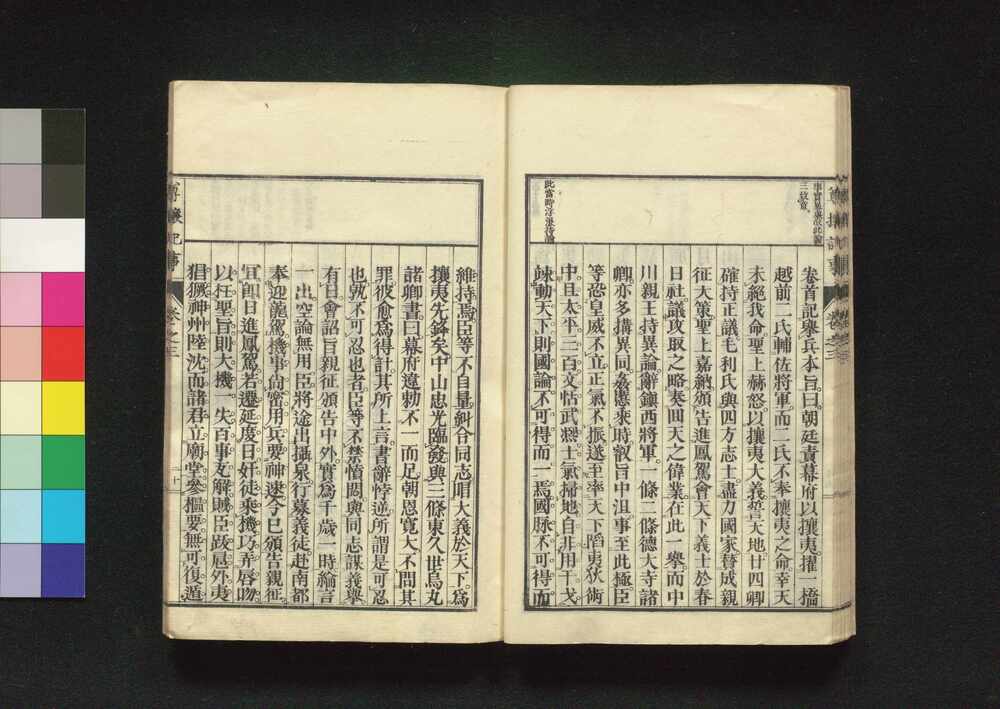 卷首記舉兵本旨曰朝廷責幕府以攘夷擢一橋
越前二氏輔佐將軍而二氏不奉攘夷之命幸天
未絕我命聖上赫怒以攘夷大義誓天地廿四卿
確持正議毛利氏與四方志士盡力國家贊成親
征大策聖上嘉納頒告進鳳駕會天下義士於春
日社議攻取之略奏回天之偉業在此一舉而中
川親王持異論辭鎮西將軍一條二條德大寺諸
卿亦多搆異同姦慝乘時叡旨中沮事至此極臣
等恐皇威不立正氣不振遂至率天下蹈夷狄術
中且太平三百文恬武熈士氣掃地自非用干戈
竦動天下則國論不可得而一焉國脉不可得而
此當時浮浪持論
維持焉臣等不自量糾合同志唱大義於天下爲
攘夷先鋒矣中山忠光臨發與三條東久世烏丸
諸卿書曰幕府違勅不一而足朝恩寬大不問其
罪彼愈爲得計其所上言書辭悖逆所謂是可忍
也孰不可忍也者臣等不禁憤悶與同志謀義舉
有日會詔旨親征頒告中外實爲千歲一時綸言
一出空論無用臣將途出攝泉行募義徒赴南都
奉迎龍駕機事尚密用兵要神速今已頒告親征
宜卽日進鳳駕若遷延度日奸徒乘機巧弄唇吻
以枉聖旨則大機一失百事瓦解賊臣跋扈外夷
猖獗神州陸沈而諸君立廟堂參樞要無可復遁